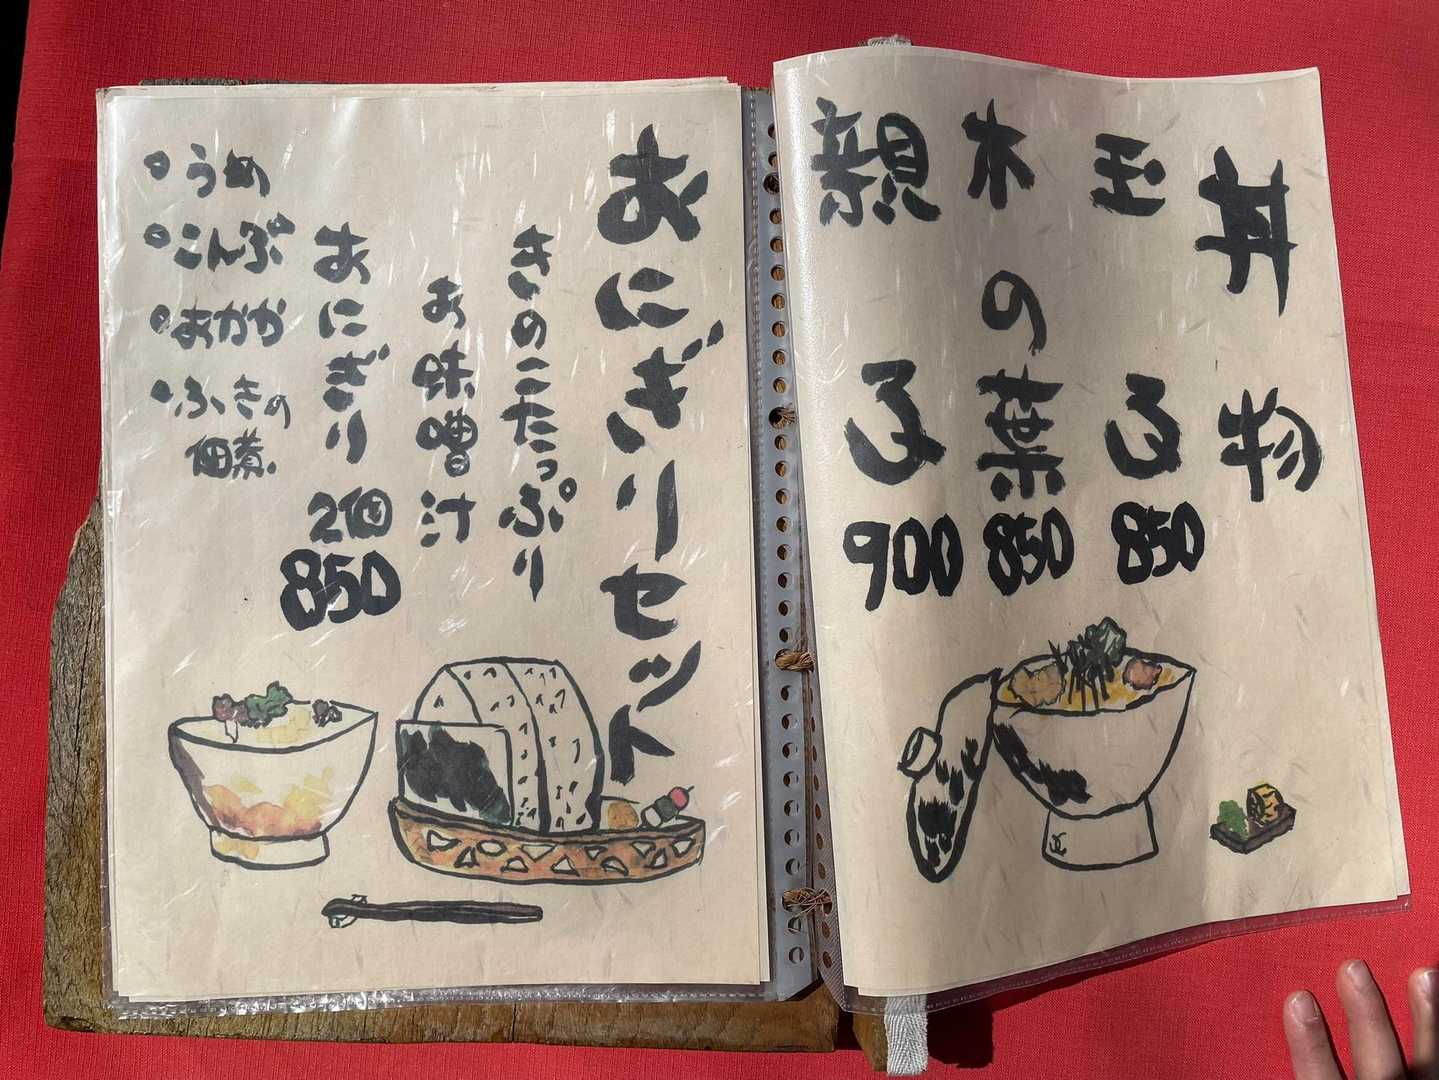 丼物
玉子 850
木の葉 850
親子 900
おにぎりセット
きのこたっぷり
お味噌汁
おにぎり 2個
850
・うめ
・こんぶ
・おかか
・ふきの
佃煮